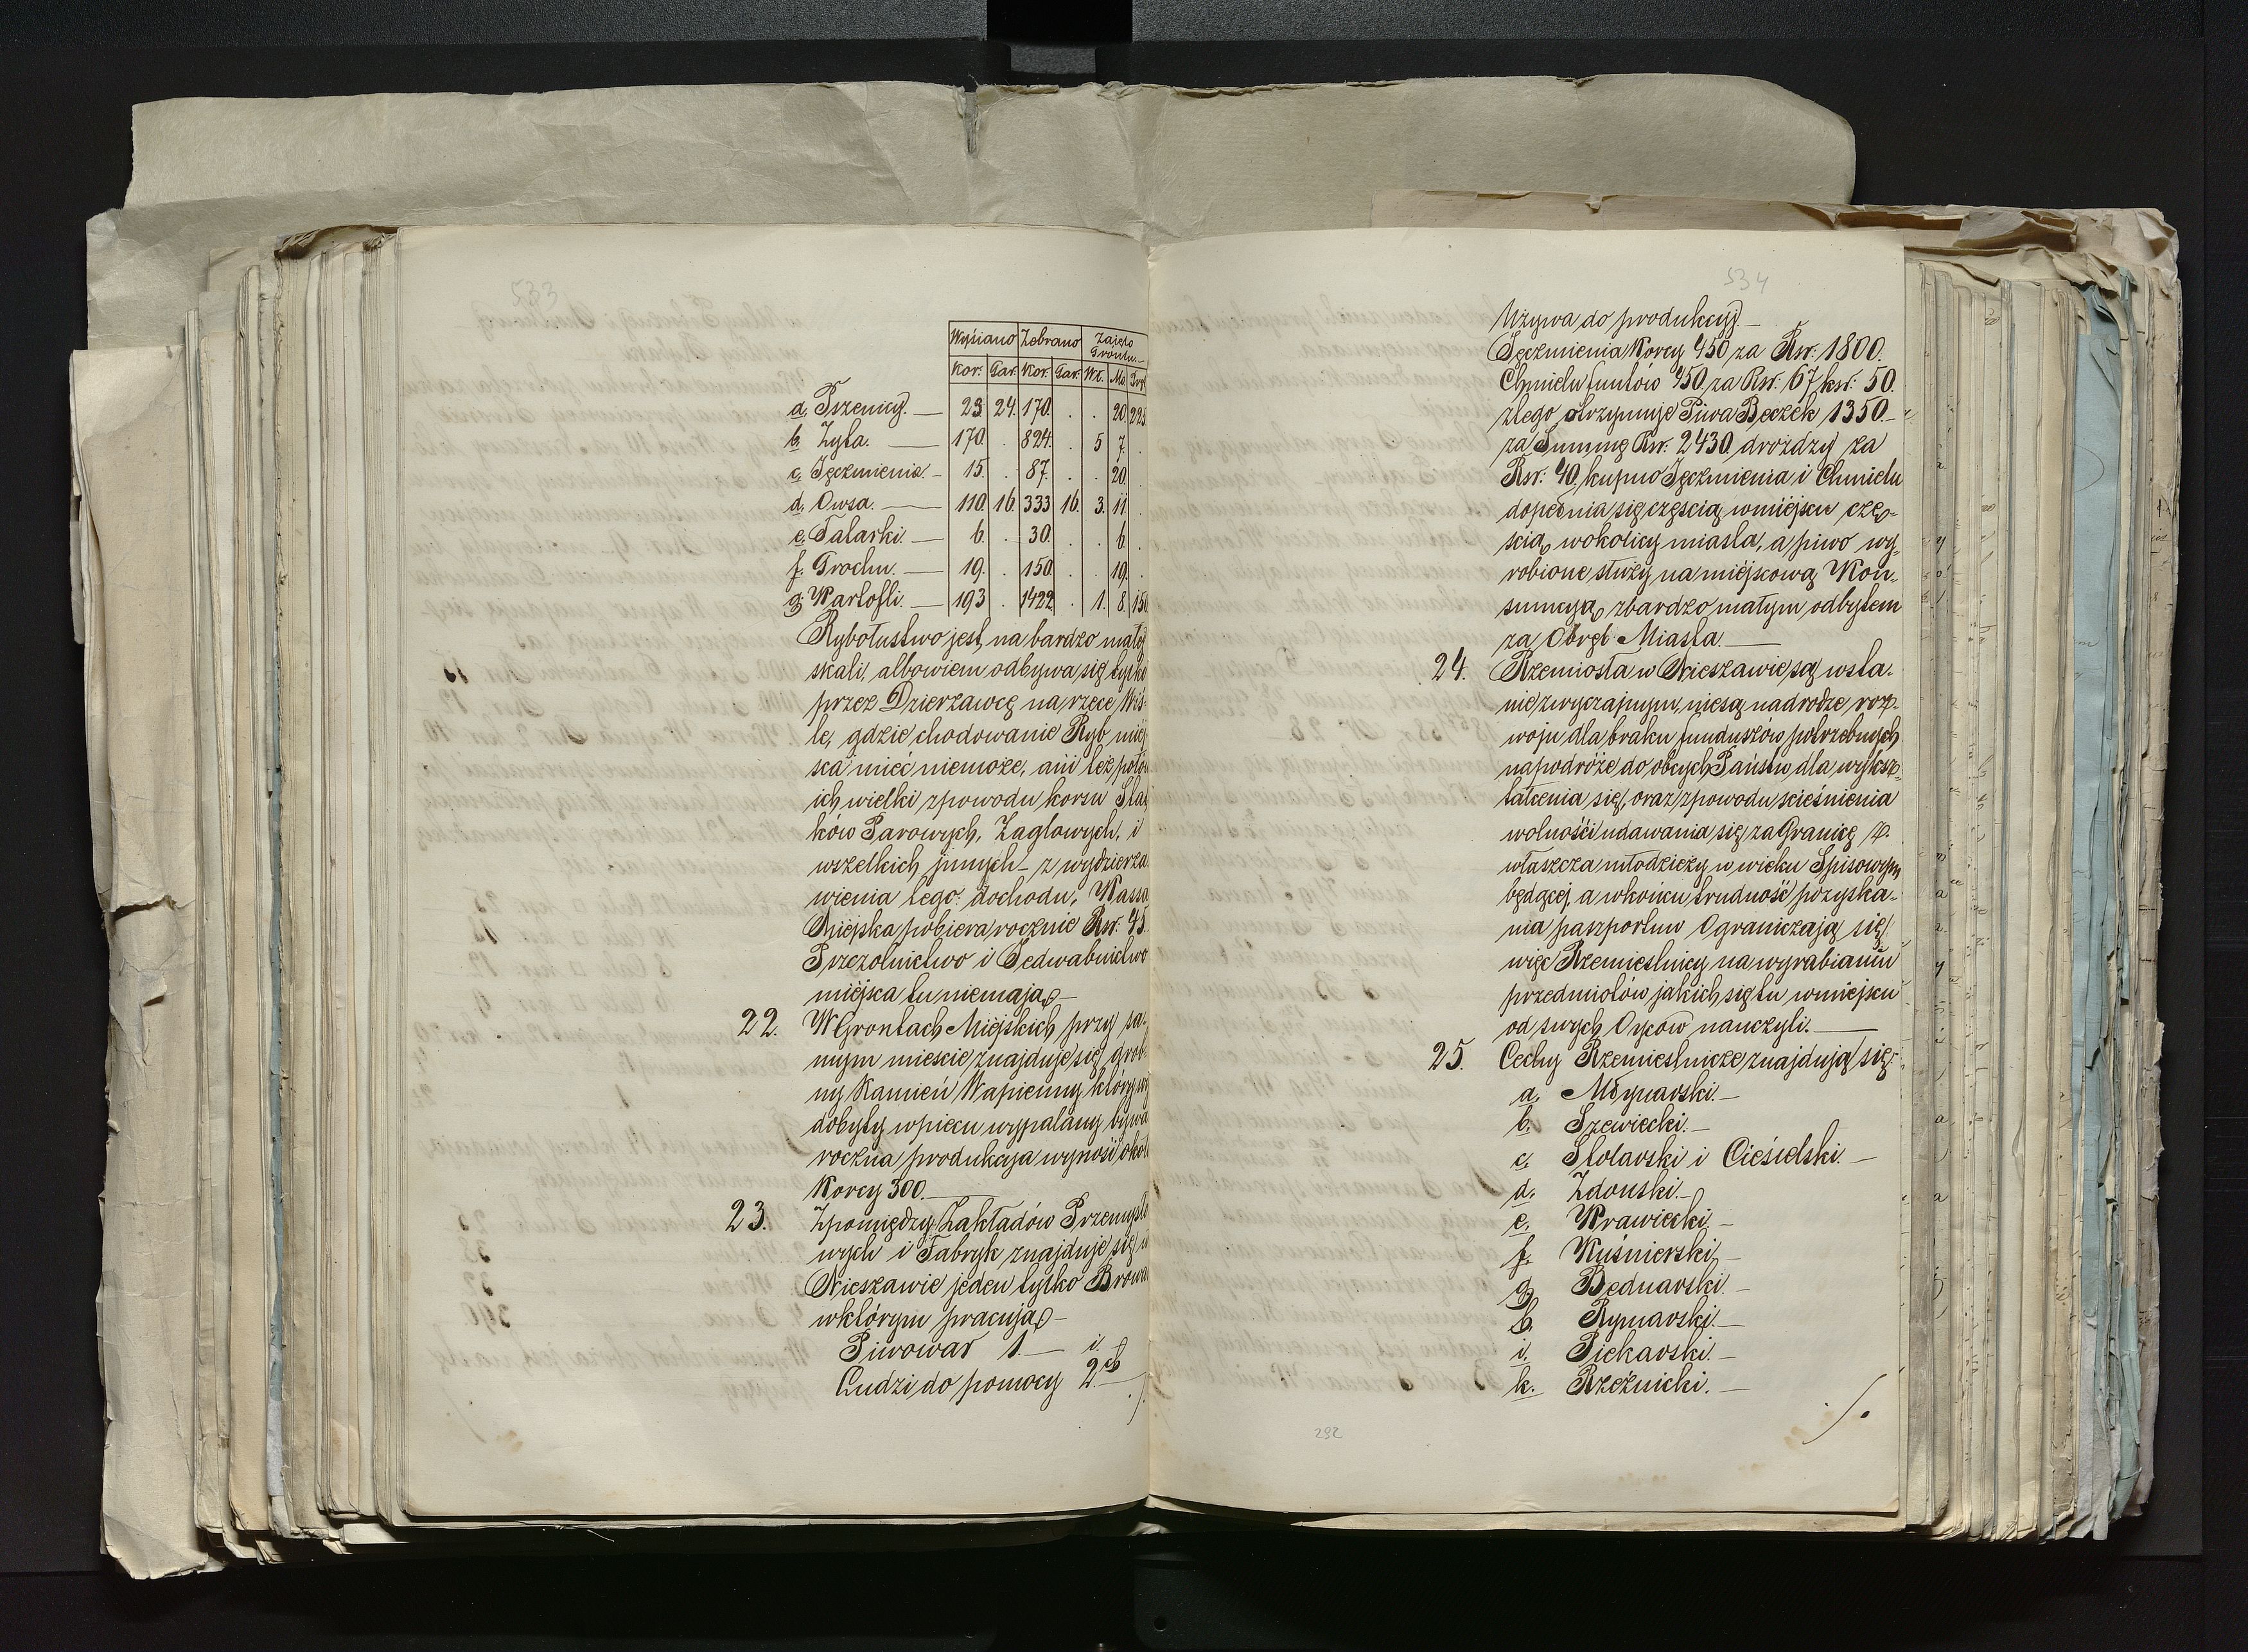 533
Wysiano Zebrano Zajęto Grontu.
Kor: Gar: Kor: Gar: Wł. Mo
a. Pszenicy. — 23 24. 170. . . 20. 225
b. Żyta. — 170. . 824. . 5 7. .
c. Jęczmienia. — 15. . 87. . . 20. .
d. Owsa. — 110. 16. 333 16. 3. 11. .
e. Tatarki. — 6. . 30. . . 6 .
f. Grochu. — 19. . 150. . . 19. .
g. Kartofli. — 193 . 1422 . 1. 8. 150
Rybołustwo jest na bardzo małej
skali, albowiem odbywa się tylko
przez Dzierzawcę na rzece Wiś-
le, gdzie chodowanie Ryb miej
sca mieć niemoże, ani też połów
ich wielki zpowodu korsu Stat
ków Parowych, Żaglowych, i
wszelkich jinnych – z wydzierża
wienia tego dochodu, Kassa
Miejska pobiera rocznie Rsr: 45.
Pszczolnictwo i Jedwabnictwo
miéjsca tu niemają –
22. W Grontach Miéjskich przy sa-
mym mieście znajduje się grob-
ny Kamień Wapienny który wy
dobyty wpiecu wypalany bywa
roczna produkcyja wynosi około
Korcy 300. —
23. Zpomiędzy Zakładów Przemysło
wych i Fabryk znajduje się w
Nieszawie jeden tylko Browar
wktórym pracują –
Piwowar 1. — i
Ludzi do pomocy 2ch —
./.
534
Używa do produkcyj. —
Jęczmienia Korcy 450 za Rsr: 1800.
Chmielu funtów 450. za Rsr: 67 ksr: 50.
ztego otrzymuje Piwa Beczek 1350. –
za Summę Rsr: 2430. drożdży za
Rsr: 40, kupno Jęczmienia i Chmielu
dopełnia się częścią wmiéjscu czę-
ścią wokolicy miasta, a piwo wy-
robione służy na miéjscową Kon-
sumcyą, zbardzo małym odbytem
za Obręb Miasta. —
24. Rzemiosła w Nieszawie są wsta-
nie zwyczajnym, niesą nadrodze roz-
woju dla braku funduszów potrzebnych
napodróże do obcych Państw, dla wyksz-
tałcenia się, oraz zpowodu ścieśnienia
wolności udawania się za Granicę z-
właszcza młodzieży w wieku Spisowym
będącej, a wkońcu trudność pozyska-
nia paszportuw Ograniczają się
więc Rzemieślnicy na wyrabianiu
przedmiotów jakich się tu wmiejscu
od swych Oyców nauczyli. —
25. Cechy Rzemieślnicze znajdują się:
a. Młynarski. —
b. Szewiecki. —
c. Stolarski i Cieśielski. —
d. Zdonski. —
e. Krawiecki. —
f. Kuśnierski, —
g. Bednarski. —
h. Rymarski. —
i. Piekarski. —
k. Rzeźnicki. —
./.
292